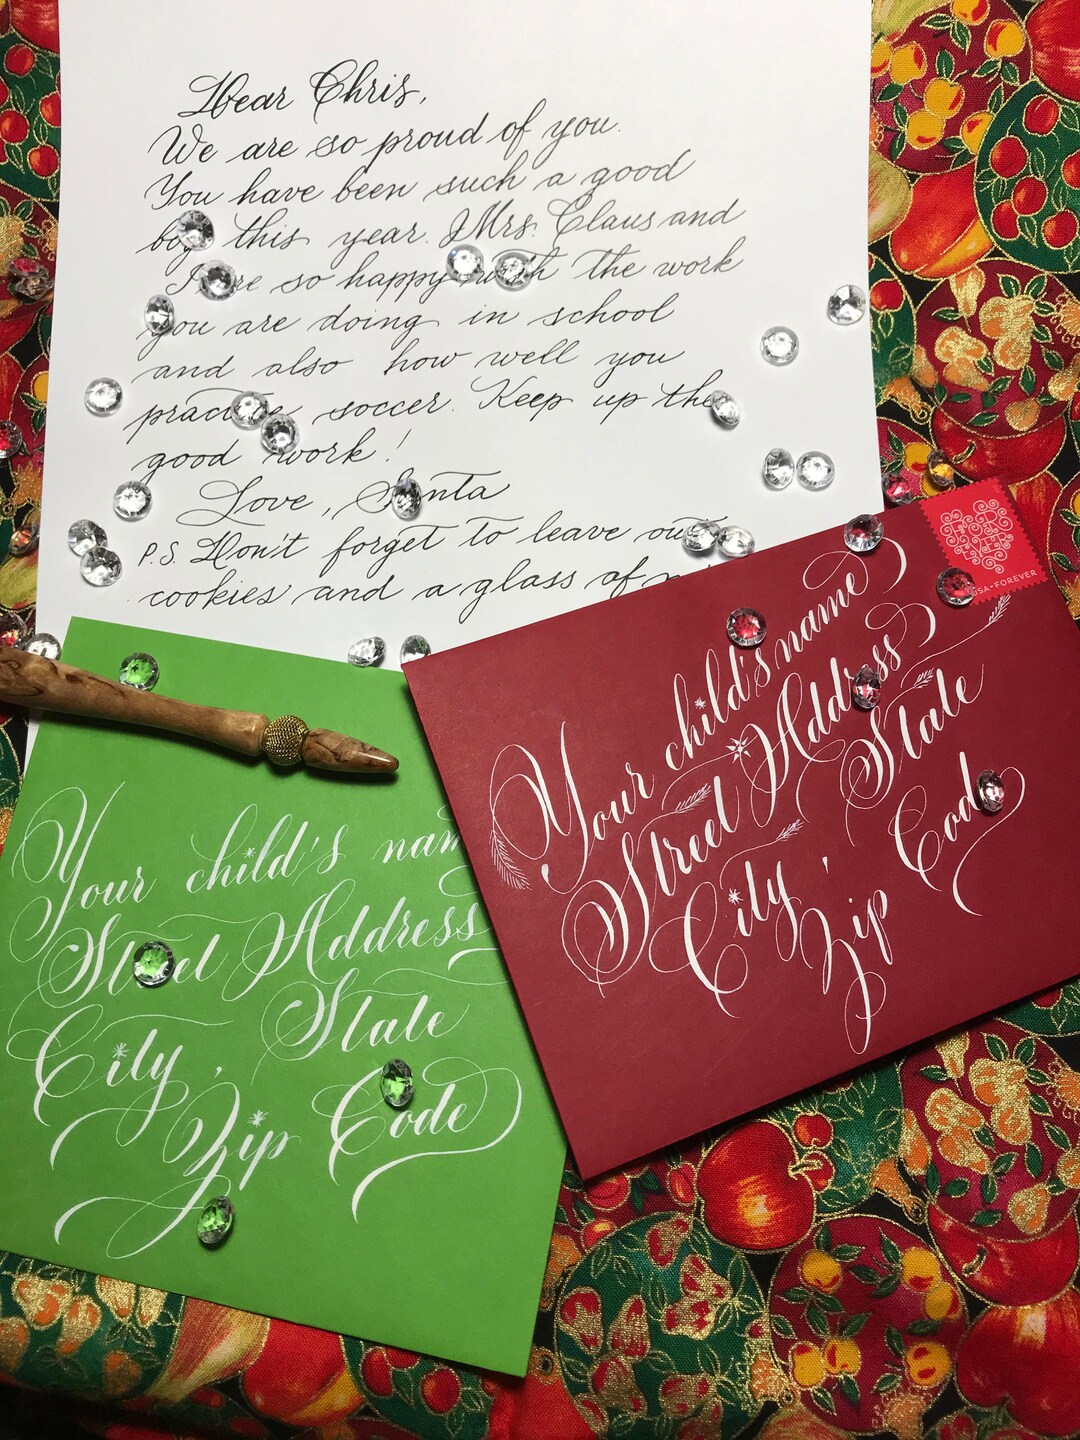 Dear Chris,
We are so proud of you.
You have been such a good
boy this year. Mrs. Claus and
I are so happy with the work
you are doing in school
and also how well you
practice soccer. Keep up the
good work!
Love, Santa
P.S. Don't forget to leave out
cookies and a glass of
Your child's name
Street Address
City, State
Zip Code
USA • FOREVER
Your child's nam
Street Address
City, State
Zip Code